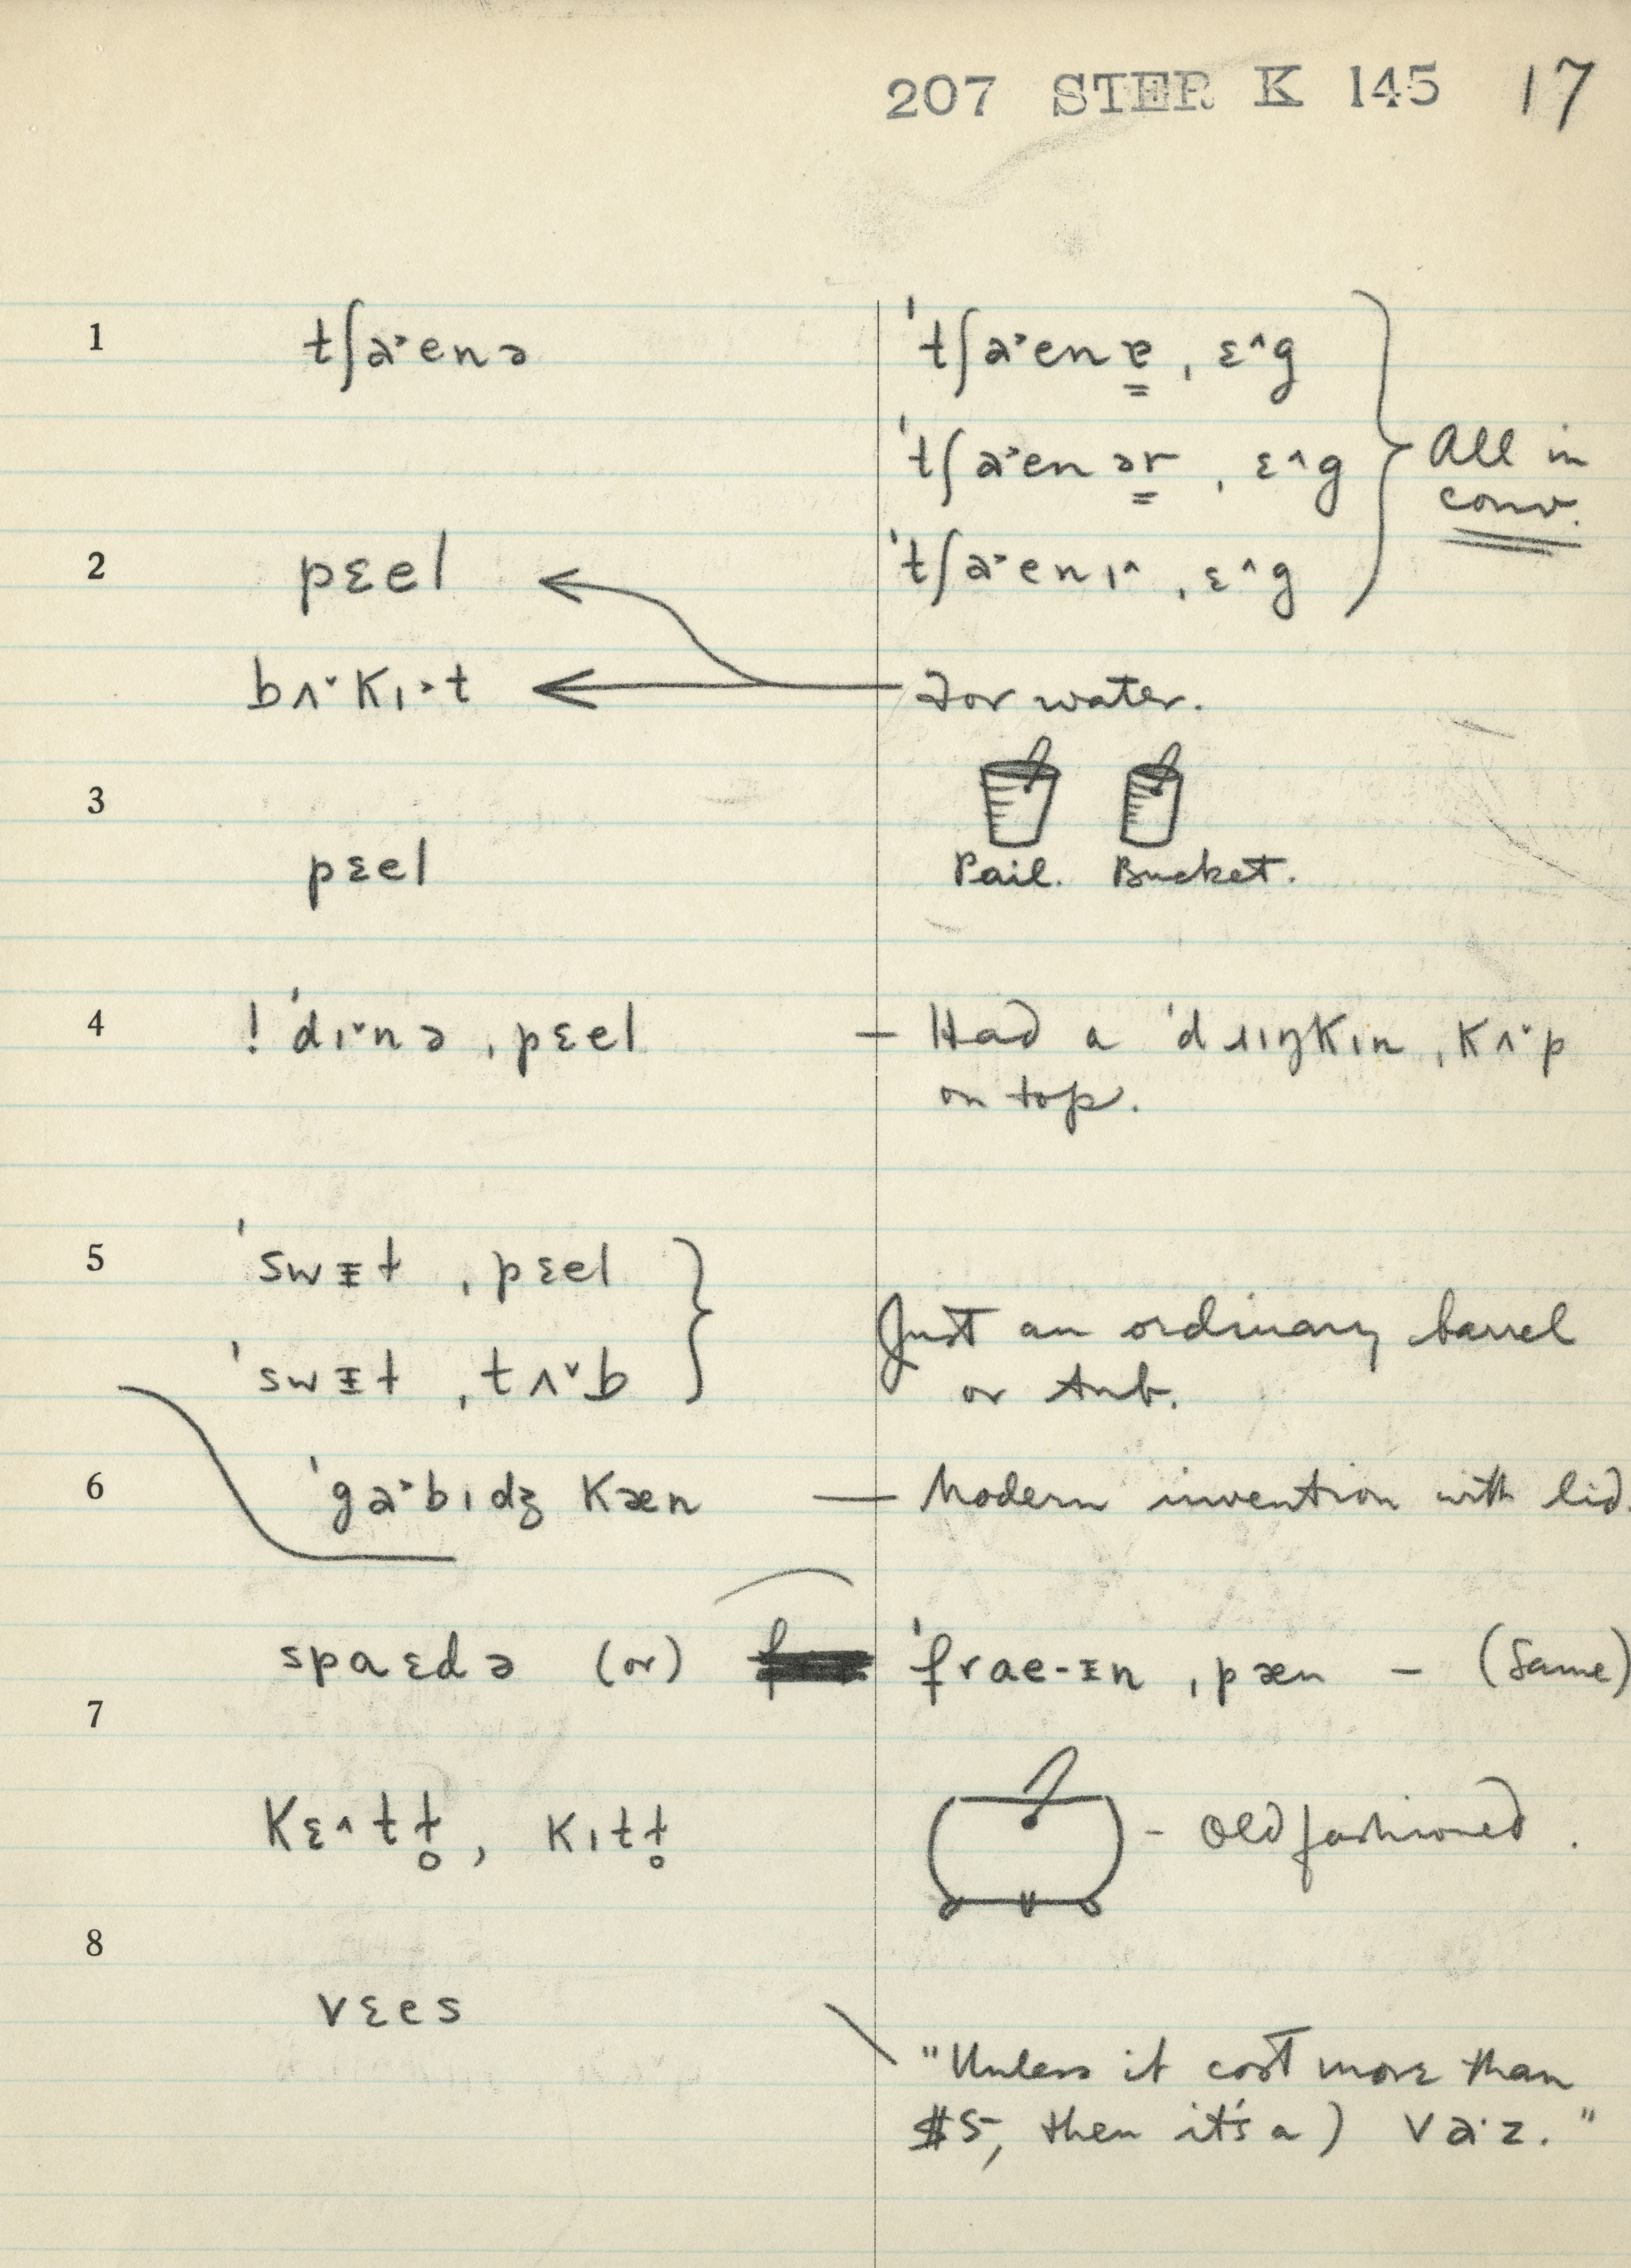 207 STER K 145 17
1 tʃa˃enə ˈtʃa˃enɐ ˌɛ^g
ˈtʃa˃enər ˌɛ^g All in
conv.
2 pɛel ˈtʃa˃enɪ^ ˌɛ^g
bʌ˅kɪ˃t For water.
3
pɛel Pail. Bucket.
4 ! ˈdɪ˅nə ˌpɛel — Had a ˈdɹɪŋkɪn ˌkʌ˅p
on top.
5 ˈswᵻɫ ˌpɛel
Just an ordinary barrel
ˈswᵻɫ ˌtʌ˅b or tub.
6 ˈga˃bɪdʒ kæn — Modern invention with lid.
spaɛdə (or) ˈfrae-ᵻn ˌpæn — (Same)
7
kɛ^tɫ̥, kɪtɫ̥ - Old fashioned.
8
vɛes
"Unless it cost more than
$5, then it's a) vaˑz."